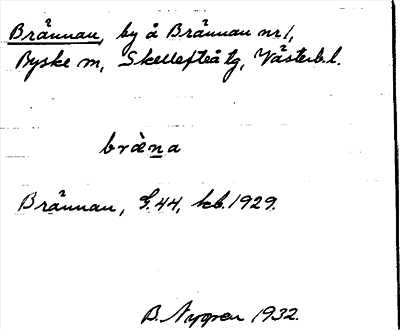 Brännan, by å Brännan nr 1,
Byske sn, Skellefteå tg, Västerb. l.
bräna
Brännan, G. 44, kb. 1929.
B. Nygren 1932.